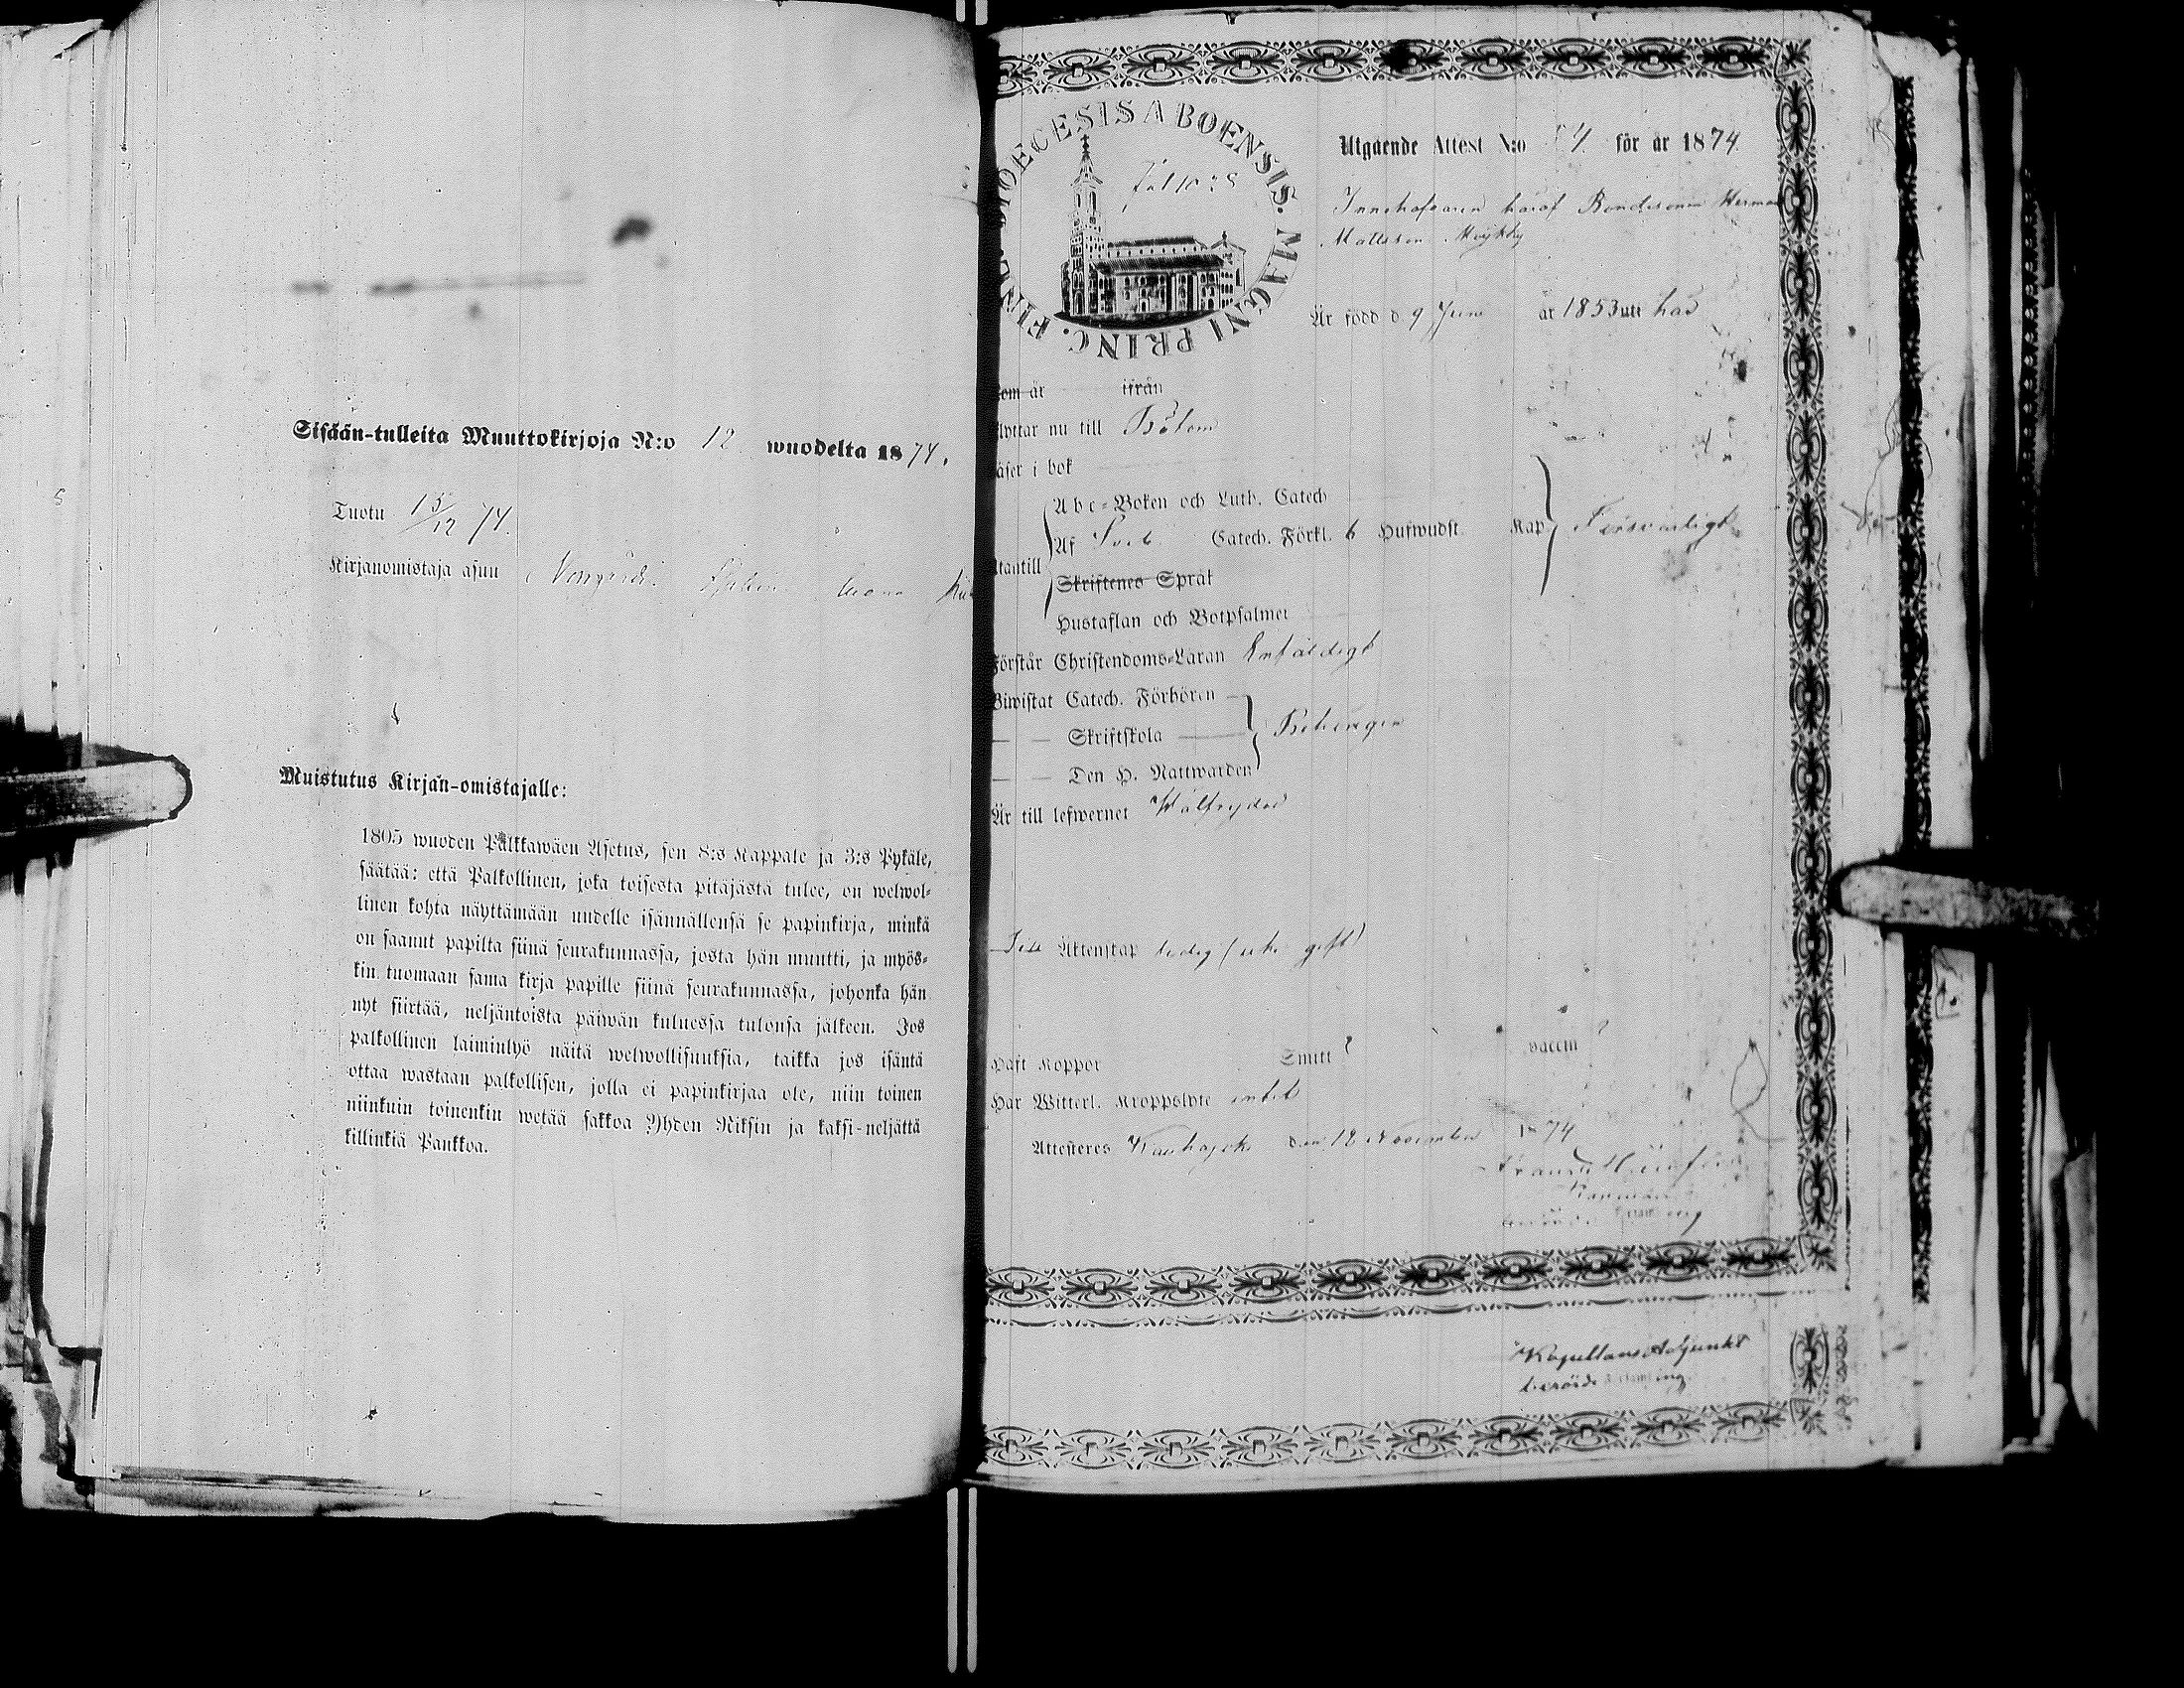 Sisään-tulleita Muuttokirjoja N:o 12 wuodelta 1874.
Tuotu 15/12 74.
Kirjanomistaja asuu
Muistutus Kirjan-omistajalle:
1805 wuoden Palkkawäen Asetus, sen 8:s Kappale ja 3:s Pykäle,
säätää: että Palkollinen, joka toisesta pitäjästä tulee, on welwol-
linen kohta näyttämään uudelle isännällensä se papinkirja, minkä
on saanut papilta siinä seurakunnassa, josta hän muutti, ja myös-
kin tuomaan sama kirja papille siinä seurakunnassa, johonka hän
nyt siirtää, neljäntoista päiwän kuluessa tulonsa jälkeen. Jos
palkollinen laiminlyö näitä welwollisuuksia, taikka jos isäntä
ottaa wastaan palkollisen, jolla ei papinkirjaa ole, niin toinen
niinkuin toinenkin wetää sakkoa Yhden Riksin ja kaksi-neljättä
killinkiä Pankkoa.
DIOECESIS ABOENSIS. MAGNI PRINC. FINL.
Utgående Attest N:o för år 1874.
Innehafvaren häraf Bondesonen Herman
Mattsson
Är född d. 9 Juni år 1853 utt här
som är ifrån
flyttar nu till
Läser i bok
Abc-Boken och Luth. Catech
Af Catech. Förkl. 6 Hufwudst. Kap Försvarligt
Utantill
Skriftenes Språk
Hustaflan och Botpsalmer
Förstår Christendoms-Läran Enfaldigt
Biwistat Catech. Förhören
— — Skriftskola
— — Den H. Nattwarden
Behörigen
Är till lefwernet Wälfrejdad
Till Äktenskap ledig (icke gift)
Haft Koppor Smitt ? vaccin ?
Har Witterl. Kroppslyte intet
Attesteras Kauhajoki den 12 November 1874
Kapellans Adjunkt